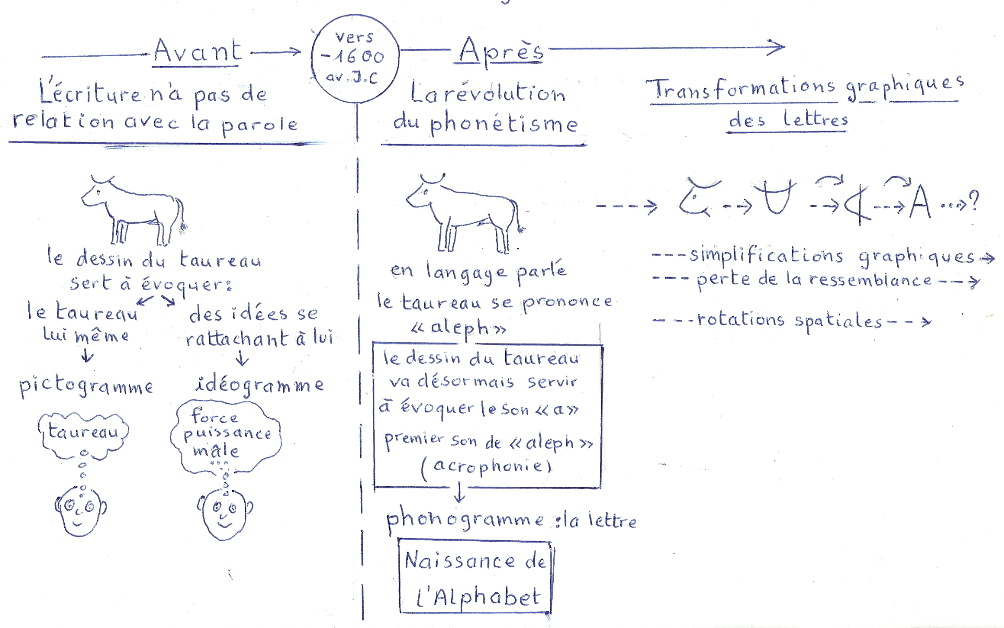 Avant
L'écriture n'a pas de
relation avec la parole
vers
-1600
av. J.C
Après
La révolution
du phonétisme
Transformations graphiques
des lettres
le dessin du taureau
sert à évoquer:
le taureau
lui même
des idées se
rattachant à lui
pictogramme
idéogramme
taureau
force
puissance
mâle
...
en langage parlé
le taureau se prononce
«aleph»
le dessin du taureau
va désormais servir
à évoquer le son «a»
premier son de «aleph»
(acrophonie)
phonogramme : la lettre
Naissance de
l'Alphabet
A ...→?
---simplifications graphiques→
---perte de la ressemblance-->
---rotations spatiales-->